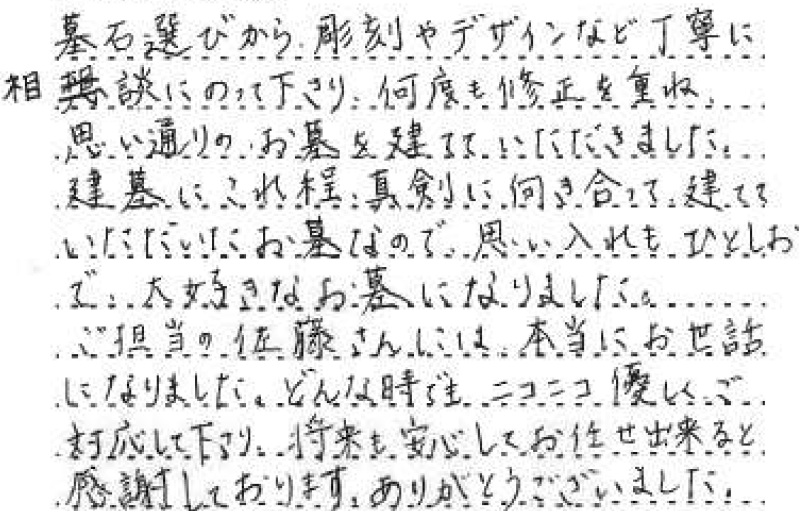 墓石選びから、彫刻やデザインなど丁寧に
相談にのって下さり、何度も修正を重ね、
思い通りのお墓を建てていただきました。
建墓にこれ程、真剣に向き合って、建てて
いただいたお墓なので、思い入れもひとしお
で、大好きなお墓になりました。
ご担当の佐藤さんには、本当にお世話
になりました。どんな時でも、ニコニコ優しくご
対応して下さり、将来も安心してお任せ出来ると
感謝しております。ありがとうございました。